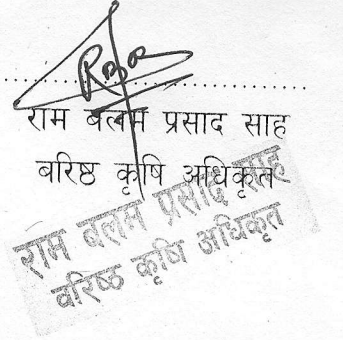 राम बलम प्रसाद साह
बरिष्ठ कृषि अधिकृत
राम बलम प्रसाद साह
वरिष्ठ कृषि अधिकृत